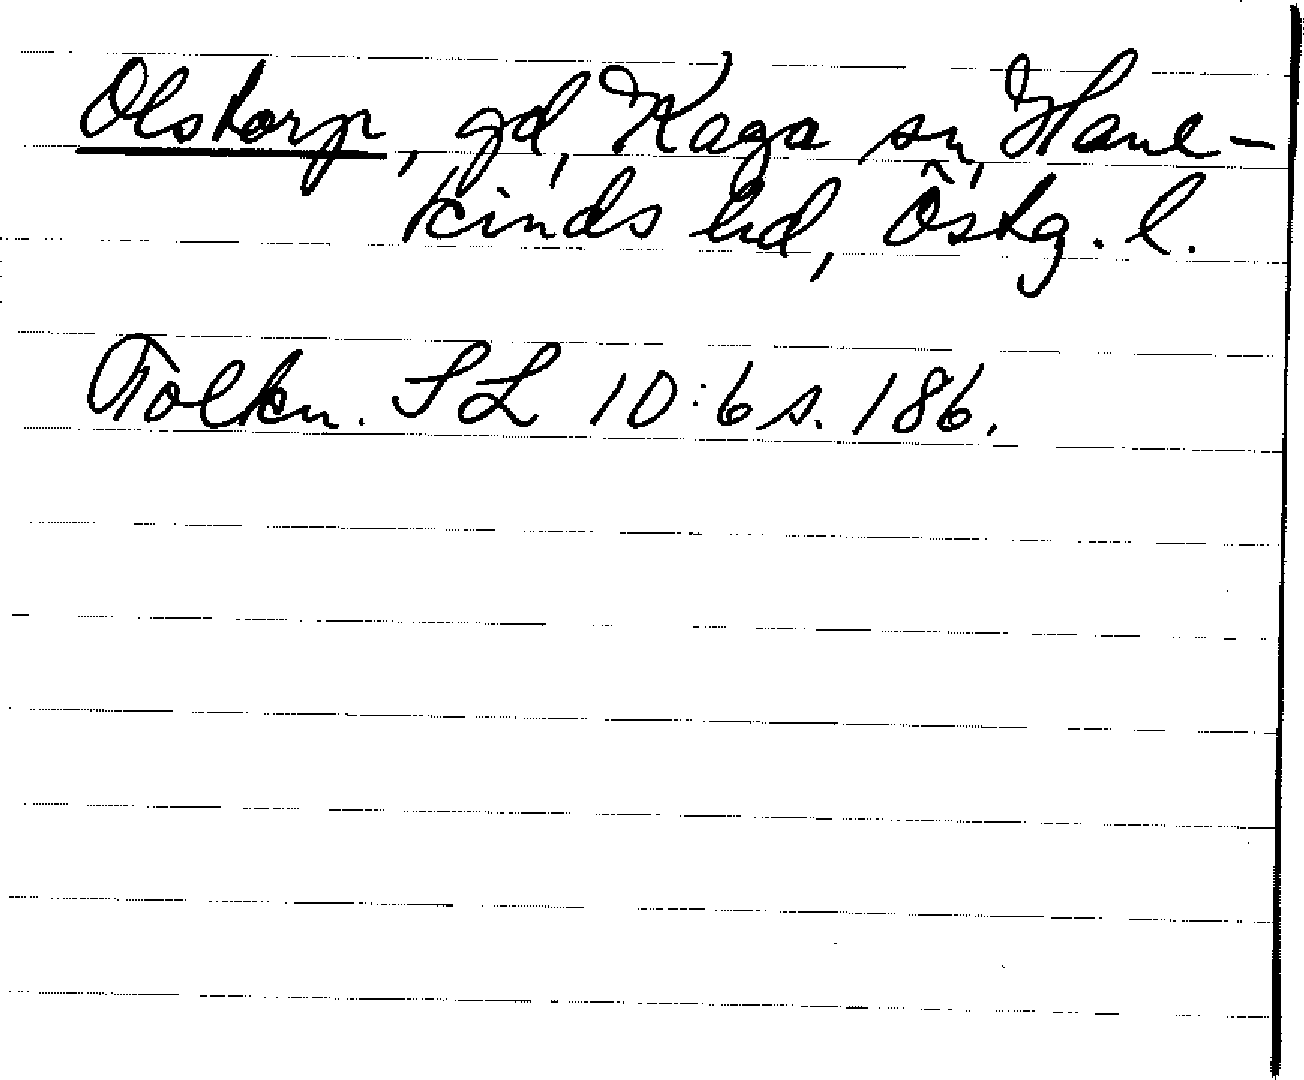 Olstorp, gd, Kaga sn, Hane-
kinds hd, Östg. l.
Tolkn. SL 10:6 s. 186.